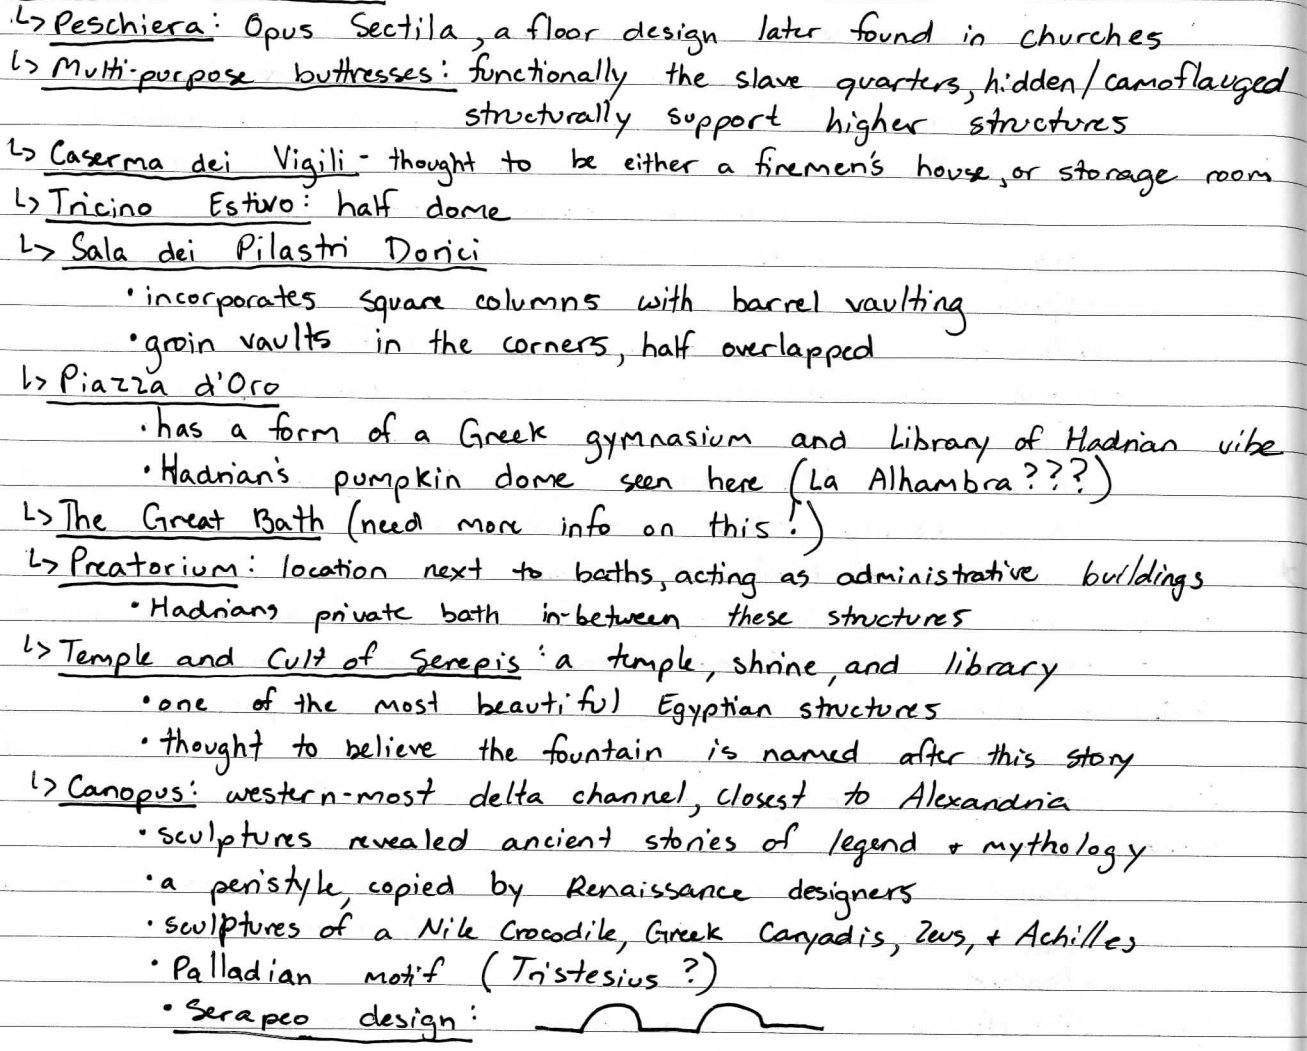 ↳ Peschiera: Opus Sectila, a floor design later found in churches
↳ Multi-purpose buttresses: functionally the slave quarters, hidden/camoflauged
structurally support higher structures
↳ Caserma dei Vigili - thought to be either a firemen's house, or storage room
↳ Tricino Estivo: half dome
↳ Sala dei Pilastri Dorici
• incorporates square columns with barrel vaulting
• groin vaults in the corners, half overlapped
↳ Piazza d'Oro
• has a form of a Greek gymnasium and Library of Hadrian vibe
• Hadrian's pumpkin dome seen here (La Alhambra???)
↳ The Great Bath (need more info on this!)
↳ Preatorium: location next to baths, acting as administrative buildings
• Hadrians private bath in-between these structures
↳ Temple and Cult of Serepis: a temple, shrine, and library
• one of the most beautiful Egyptian structures
• thought to believe the fountain is named after this story
↳ Canopus: western-most delta channel, closest to Alexandria
• sculptures revealed ancient stories of legend + mythology
• a peristyle, copied by Renaissance designers
• sculptures of a Nile Crocodile, Greek Caryadis, Zeus, + Achilles
• Palladian motif (Tristesius?)
• Serapeo design: